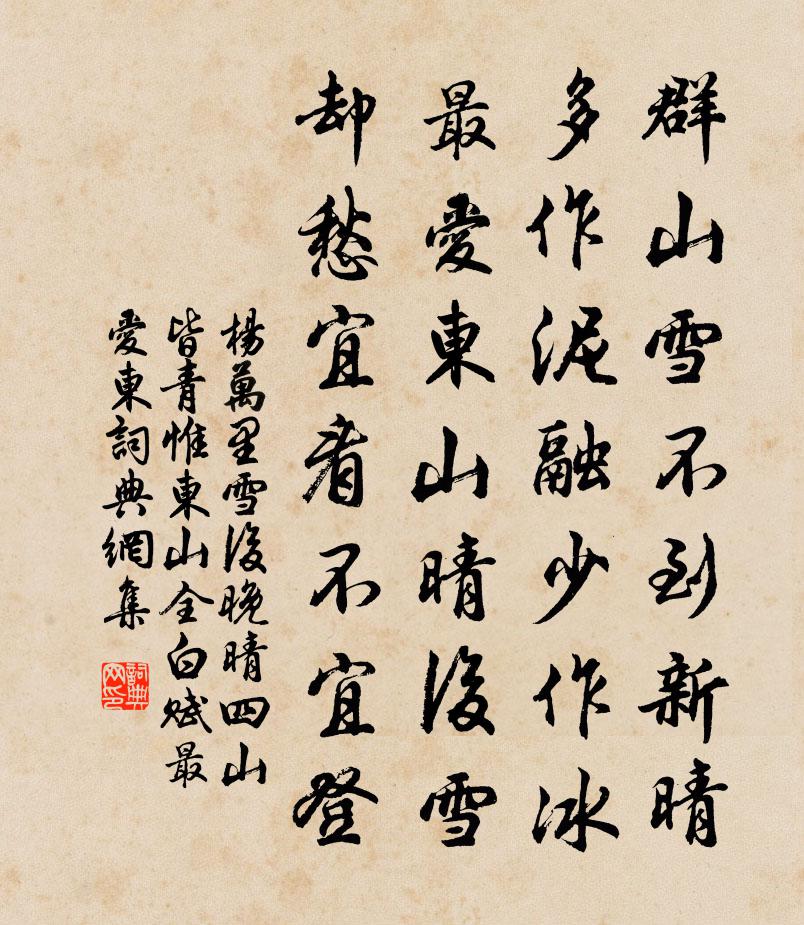 群山雪不到新晴
多作泥融少作冰
最愛東山晴後雪
却愁宜看不宜登
楊萬里雪後晚晴四山
皆青惟東山全白賦最
愛東詞典網集
詞典网印